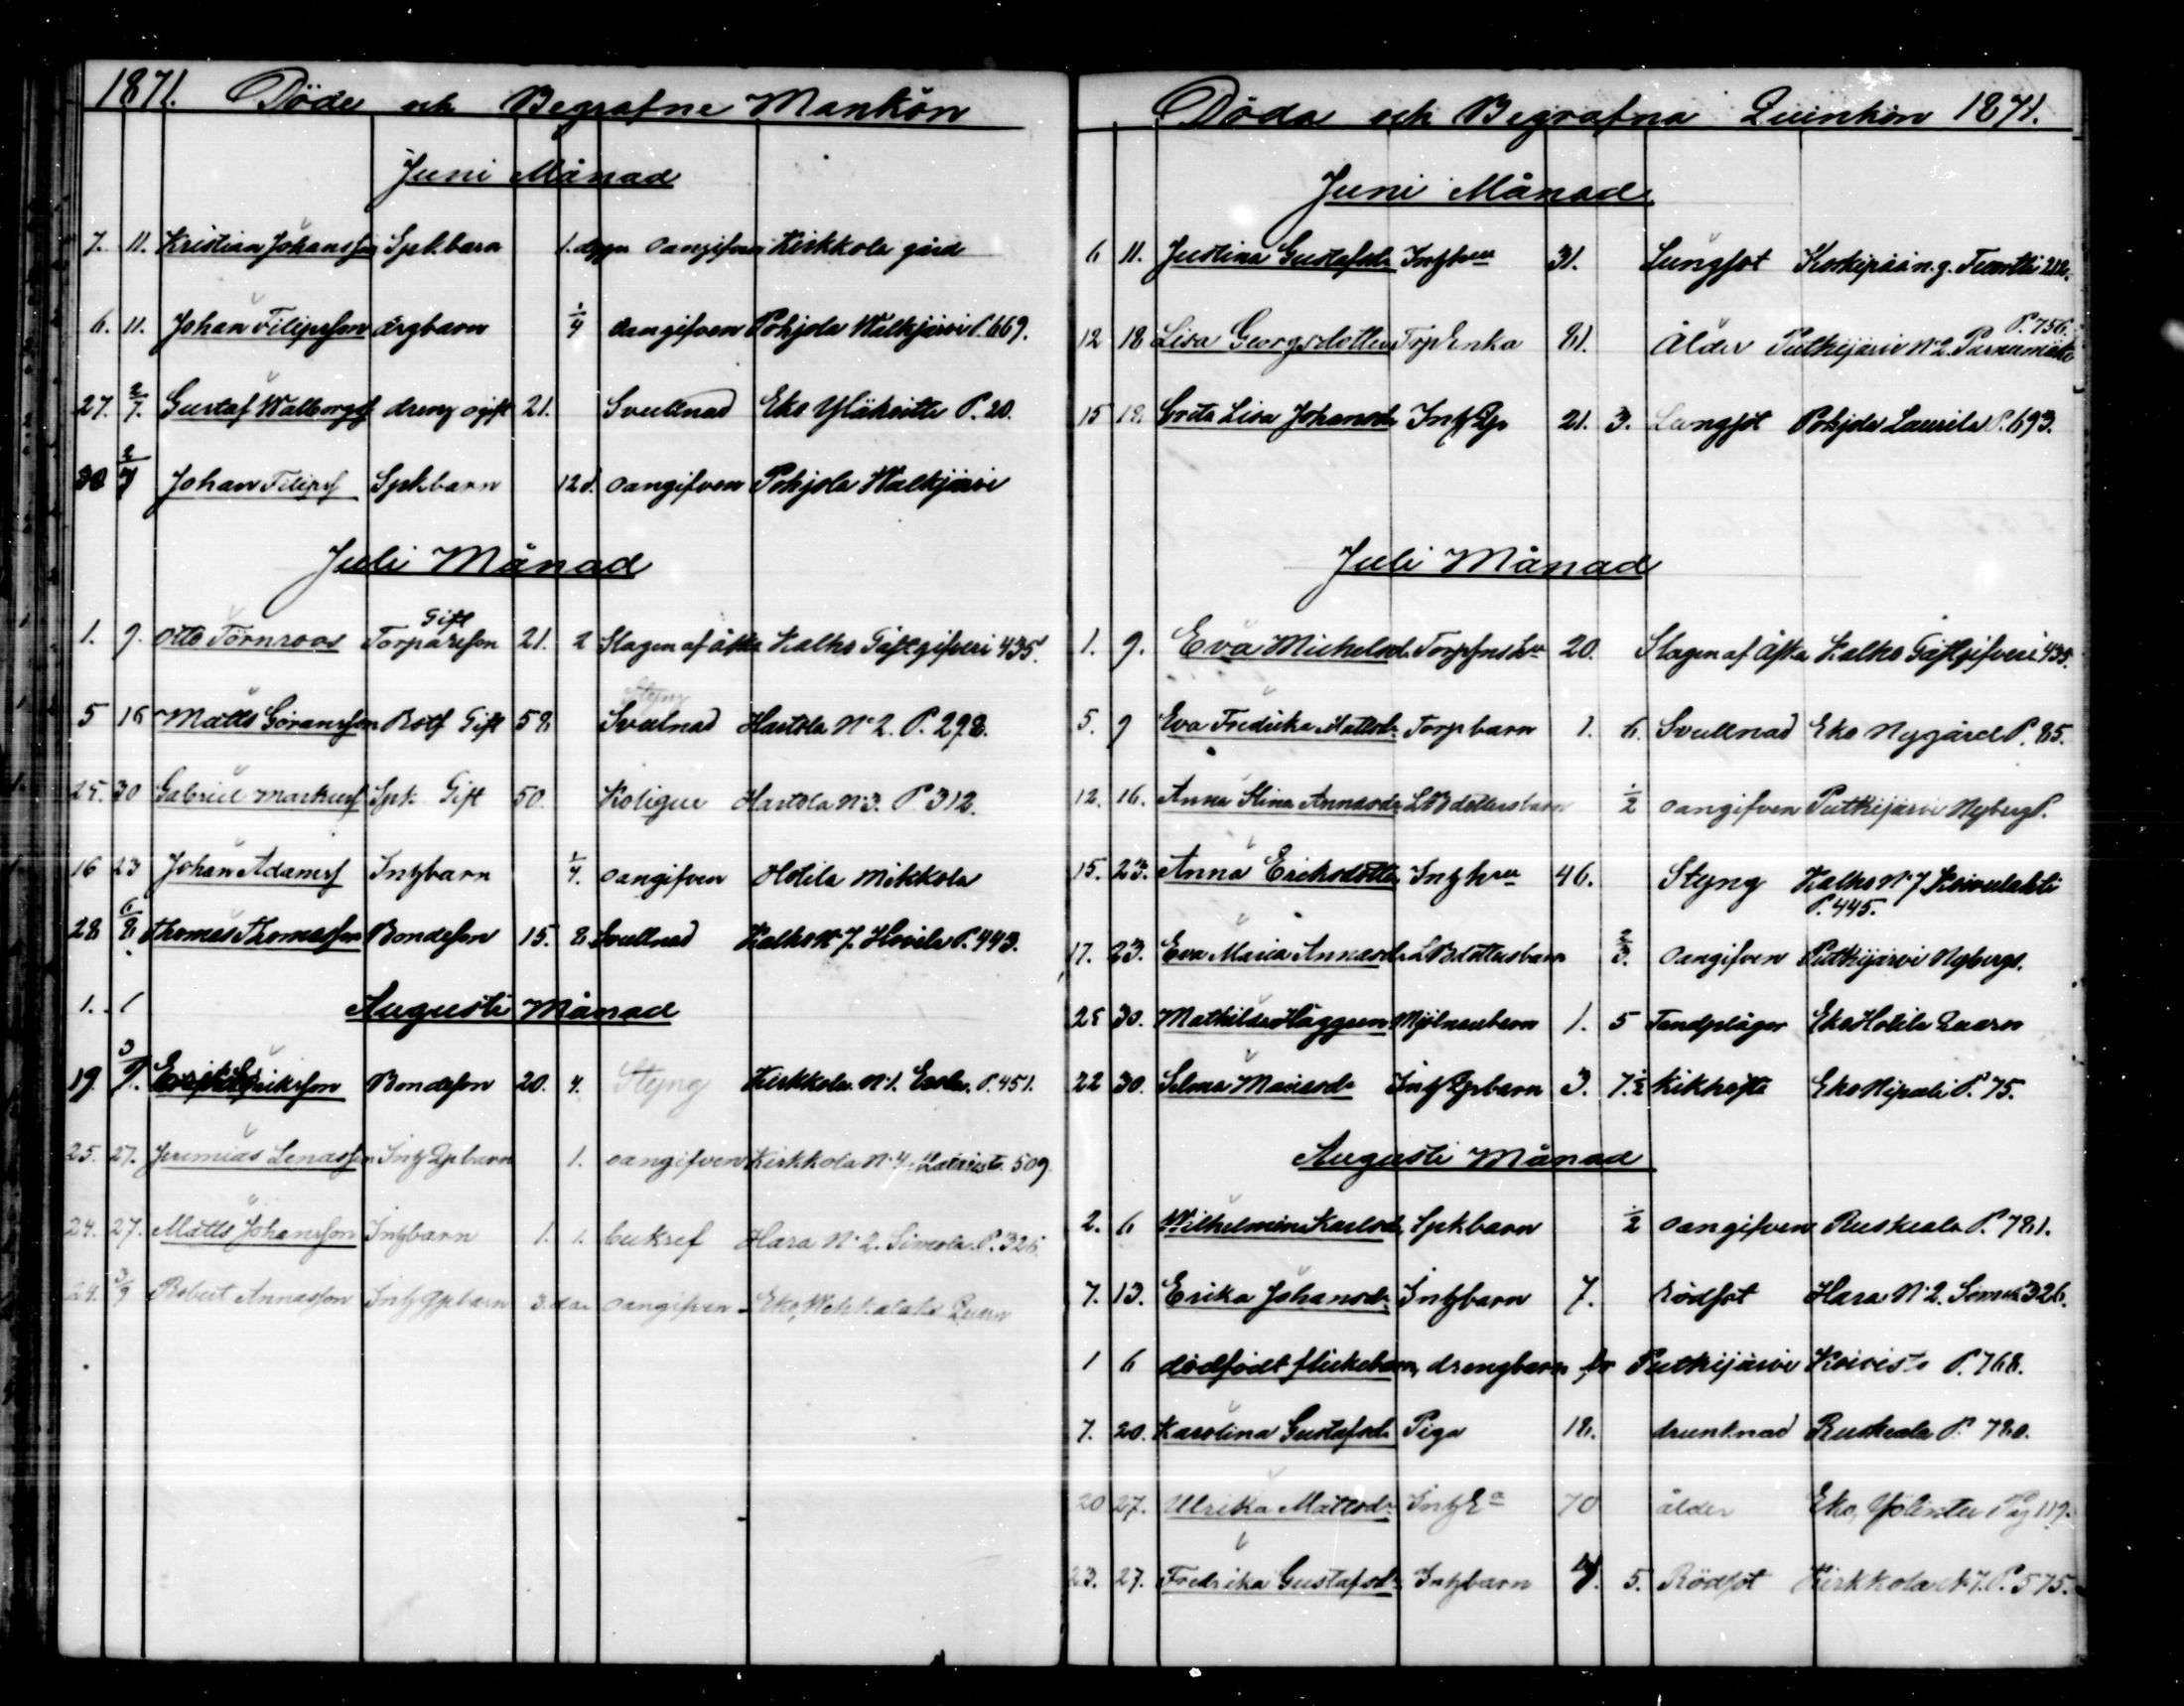 1871. Döde och Begrafne Mankön
Juni Månad
7. 11. Kristian Johansson Spk.barn 1. dygn oangifven Kirkkola gård
6. 11. Johan Filipsson barn 1/4 oangifven Pohjola Walkjärvi P. 669.
27. 2/7. Gustaf Walborgsf dreng ogift 21. Svullnad Eko Yläkoitti P. 20.
30 2/7 Johan Filipsf Spk.barn 12 d. oangifven Pohjola Walkjärvi
Juli Månad
1. 9. Otto Törnroos Torpareson Gift 21. 2 Slagen af åska Kalho Gästgifveri 435.
5 16 Matts Göransson Rotf Gift 58 Styng Svullnad Hartola N:2. P. 298.
25. 30 Gabriel Markusf Spk. Gift 50. Kolique Hartola N:3. P. 312.
16 23 Johan Adamsf Inhbarn 1/4. oangifven Hotila Mikkola
28 6/8 Thomas Thomasson Bondeson 15. 8. Svullnad Kalho N:7. Hovila P. 443.
1. 1
Augusti Månad
19 3/9. Eriksson Bondeson 20. 4. Styng Kirkkola N:1. Eerola P. 451.
25. 27. Jeremias Lenasson Inh Qpbarn 1. oangifven Kirkkola N:4. 509
24. 27. Matts Johansson Inhbarn 1. 1. Hara N:2. Simola P. 326.
24. 3/9 Robert Annasson Inh Qpbarn 3. dar oangifven Eko, Quarn
Döda och Begrafna Quinkön 1871.
Juni Månad
6 11. Justina Gustafsdr Inhhru 31. Lungsot Koskipää n.g. 212.
12 18 Lisa Georgsdotter Torp Enka 81. Ålder Putkijärvi N:2. P. 756.
15 18. Greta Lisa Johansdr Inh Qp 21. 3. Lungsot Pohjola Laurila P. 693.
Juli Månad
1. 9. Eva Michelsdr Torpsns hru 20. Slagen af Åska Kalho Gästgifveri 435.
5. 9 Eva Fredrika Mattsdr Torpbarn 1. 6. Svullnad Eko Nygård P. 85.
12. 16. Anna Stina Annasdr L B dottersbarn 1/2 oangifven Putkijärvi Nyberg P.
15. 23. Anna Ericksdotter Inhhru 46. Styng Kalho N:7 Koivulahti P. 445.
17. 23. Eva Maria Annasdr L B dottersbarn 2/3. oangifven Putkijärvi Nybergs.
25 30. Mathilda Häggren Mjölnarebarn 1. 5 Tandplågor Eko Hotila Quarn
22 30. Selma Mariasdr Inh Qpbarn 3. 7.1/2 kikhosta Eko Nipuli P. 75.
Augusti Månad
2. 6 Wilhelmina Karlsdr Spkbarn 1/2 oangifven Ruskeala P. 781.
7. 13. Erika Johansdr Inhbarn 7. Rödsot Hara N:2. 326.
1 6 dödfödt flickebarn, drengbarn fr Putkijärvi Koivisto P. 768.
7. 20. Karolina Gustafsdr Piga 18. drunknad Ruskeala P. 780.
20 27. Ulrika Mattsdr Inh Ea 70 ålder Eko, Pag 119.
23. 27. Fredrika Gustafsdr Inhbarn 4. 5. Rödsot Kirkkola N:7. P. 575.